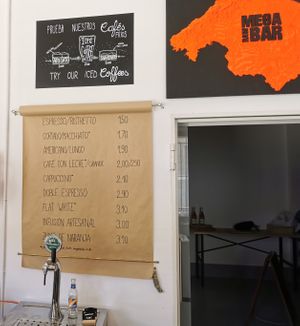 PRUEBA NUESTROS Cafés FRÍOS
TRY OUR ICED Coffees
MEGA
BAR
ESPRESSO/RISTRETTO 1.50
CORTADO/MACCHIATO* 1.70
AMERICANO/LUNGO 1.90
CAFÉ CON LECHE*/LARGE 2.00/2.50
CAPPUCCINO* 2.40
DOBLE ESPRESSO 2.90
FLAT WHITE* 3.10
INFUSIÓN ARTESANAL 3.00
DE NARANJA 3.90